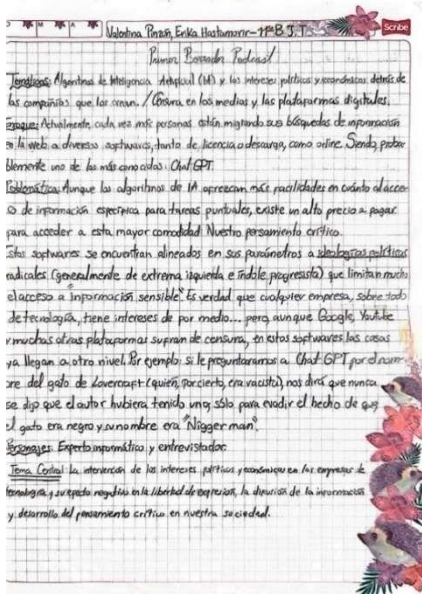 D M A Valentina Pinzón, Erika Hastamorir - 11°B J.T. Scribe
Primer Borrador Podcast
Temáticas: Algoritmos de Inteligencia Artificial (IA) y los intereses políticos y económicos detrás de
las compañías que las crean. / Censura en los medios y las plataformas digitales.
Enfoque: Actualmente, cada vez más personas están migrando sus búsquedas de información
en la web a diversos softwares, tanto de licencia o descarga, como online. Siendo, proba-
blemente uno de los más conocidos: Chat GPT.
Problemática: Aunque los algoritmos de IA ofrezcan más facilidades en cuánto al acce-
so de información específica para tareas puntuales, existe un alto precio a pagar
para acceder a esta mayor comodidad: Nuestro pensamiento crítico.
Estos softwares se encuentran alineados en sus parámetros a ideologías políticas
radicales (generalmente de extrema izquierda e índole progresista) que limitan mucho
el acceso a "información sensible". Es verdad que cualquier empresa, sobre todo
de tecnología, tiene intereses de por medio... pero, aunque Google, Youtube
y muchas otras plataformas sufran de censura, en estos softwares las cosas
ya llegan a otro nivel. Por ejemplo: si le preguntáramos a Chat GPT por el nom-
bre del gato de Lovercraft (quién, por cierto, era racista), nos dirá que nunca
se dijo que el autor hubiera tenido uno, sólo para evadir el hecho de que
el gato era negro y su nombre era "Nigger man".
Personajes: Experto informático y entrevistador.
Tema Central: La intervención de los intereses políticos y económicos en las empresas de
tecnología, y su efecto negativo en la libertad de expresión, la difusión de la información
y desarrollo del pensamiento crítico en nuestra sociedad.